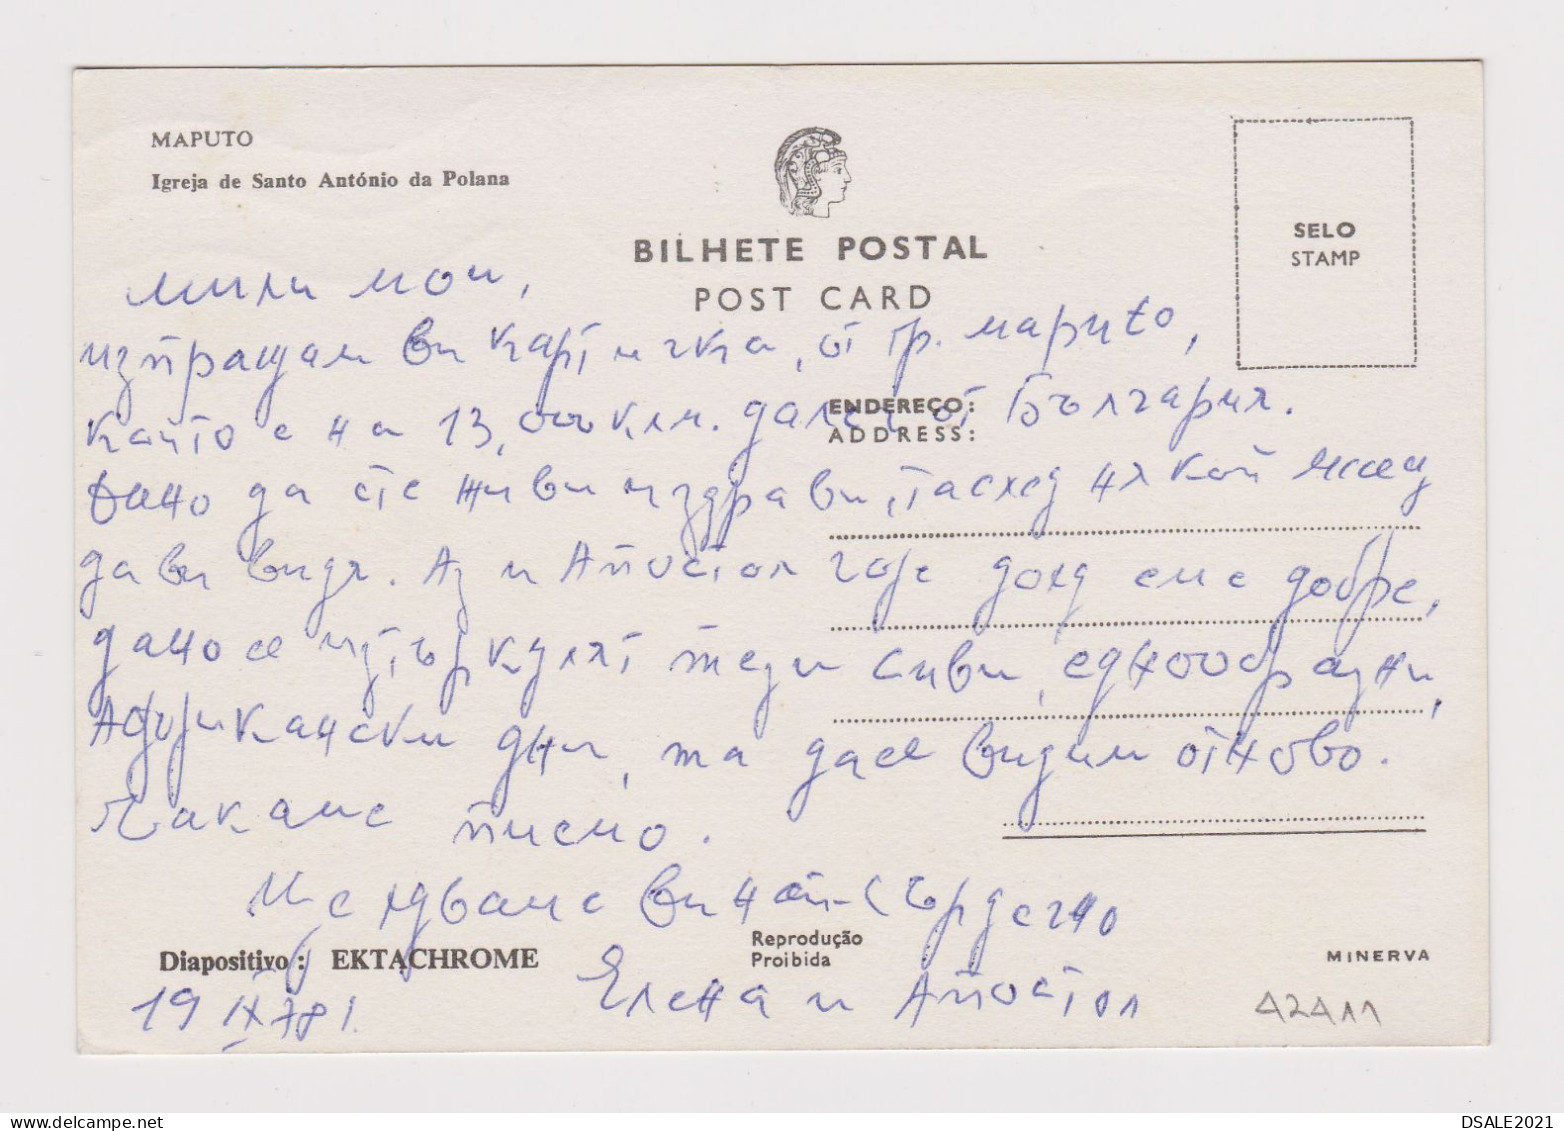 MAPUTO
Igreja de Santo António da Polana
BILHETE POSTAL
POST CARD
SELO
STAMP
мили мои,
изпращам ви картичка, от гр. мариto,
което е на 13,000 клм. далеч от България.
ENDEREÇO:
ADDRESS:
Дано да сте живи и здрави, та след някой месец
да ви видя. Аз и Апостол горе долу сме добре,
дано се изтъркулят тези сиви, еднообразни,
Африкански дни, та да се видим отново.
Чакаме писмо.
Целуваме ви най-сърдечно
Diapositivo: EKTACHROME
Reprodução
Proibida
MINERVA
Елена и Апостол
19 IX 78
A2A11
DSALE2021